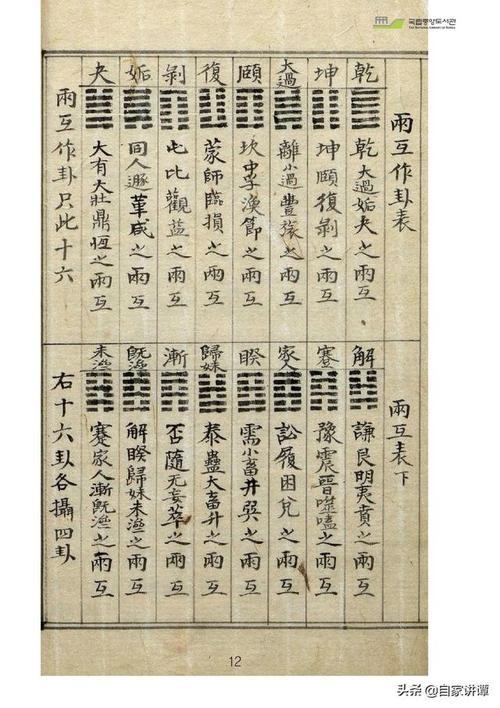 국립중앙도서관
THE NATIONAL LIBRARY OF KOREA
兩互作卦表
乾
乾大過姤夬之兩互
坤
坤頤復剝之兩互
大過
離小過豊旅之兩互
頤
坎中孚渙節之兩互
復
蒙師臨損之兩互
剝
屯比觀益之兩互
姤
同人遯革咸之兩互
夬
大有大壯鼎恒之兩互
兩互作卦只此十六
兩互表下
解
謙艮明夷賁之兩互
蹇
豫震晉噬嗑之兩互
家人
訟履困兌之兩互
睽
需小畜井巽之兩互
歸妹
泰蠱大畜升之兩互
漸
否隨无妄萃之兩互
既濟
解睽歸妹未濟之兩互
未濟
蹇家人漸既濟之兩互
右十六卦各攝四卦
12
头条 @自家讲谭